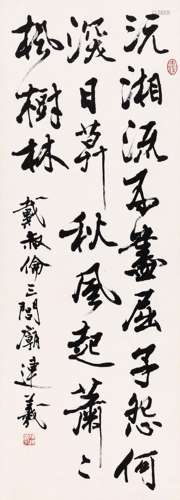 沅湘流不盡屈子怨何
深日暮秋風起蕭〻
楓樹林
戴叔倫三閭廟連羲